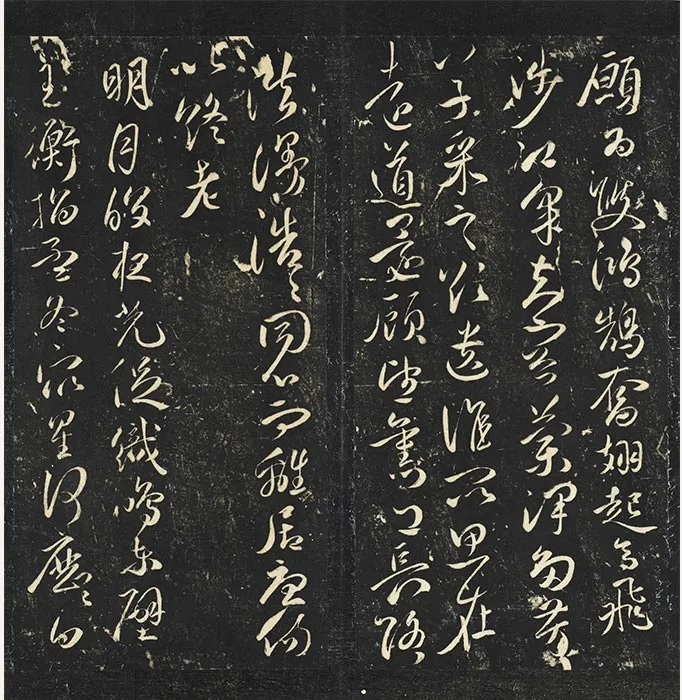 願為雙鴻鵠奮翅起高飛
涉江采芙蓉蘭澤多芳
草采之欲遺誰所思在
遠道還顧望舊鄉長路
漫浩〻同心而離居憂傷
以終老
明月皎夜光促織鳴東壁
玉衡指孟冬眾星何歷〻白